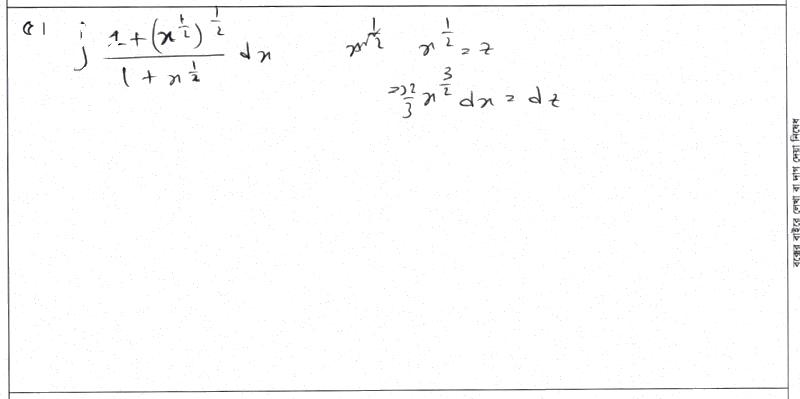 Q 1 ∫ (1 + (x^(1/2))^(1/2)) / (1 + x^(1/2)) dx    x^(1/2) = z
=> 2/3 x^(3/2) dx = dz
বক্সের বাইরে লেখা বা দাগ দেয়া নিষেধ